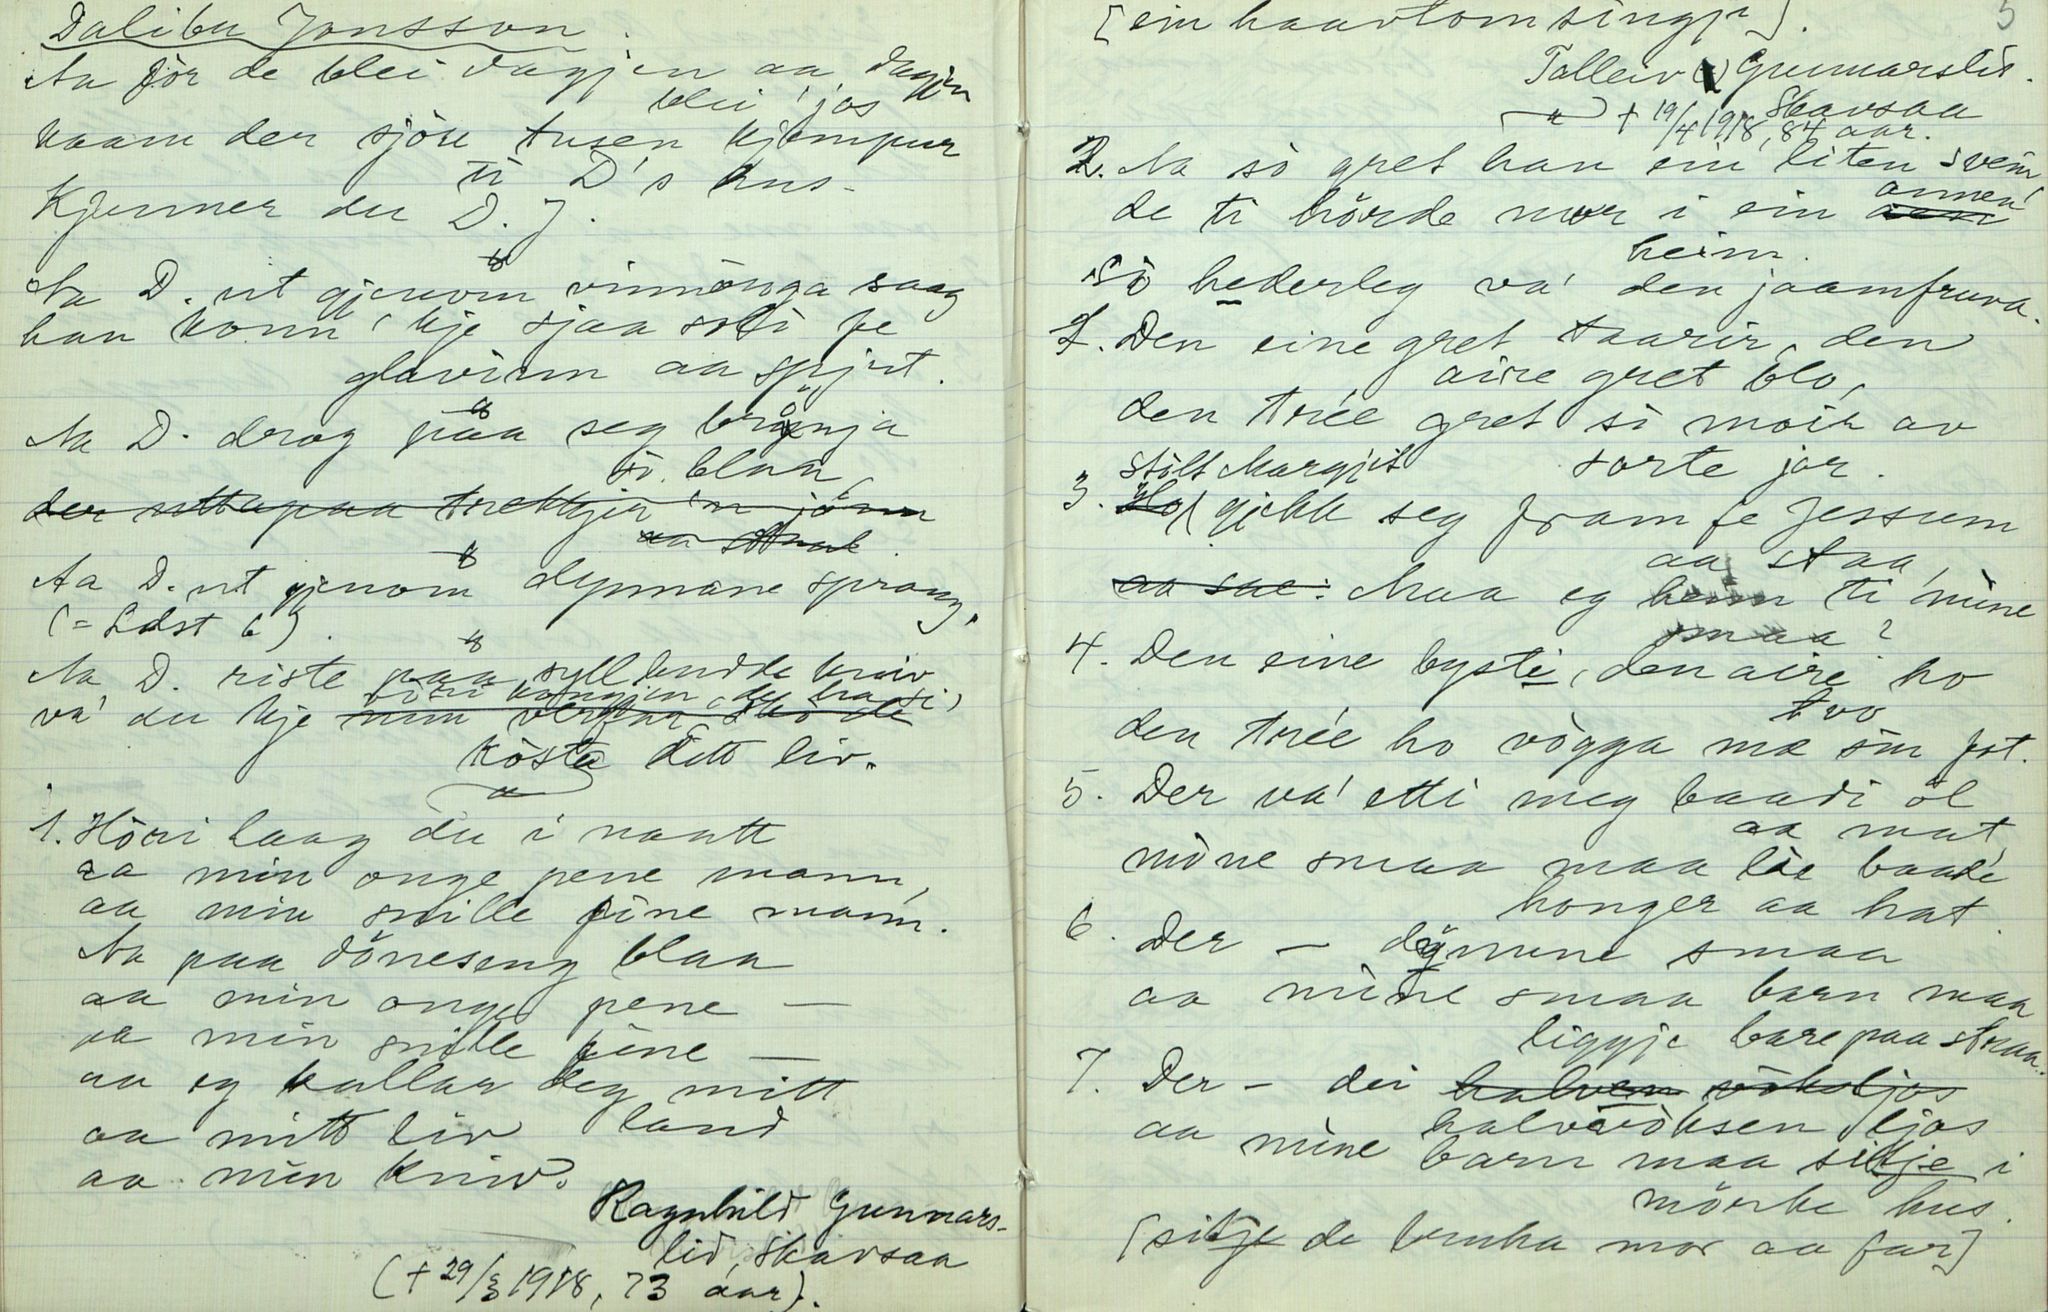 Dalibu Jonsson.
Aa för de blei dagjen aa dagjen
blei ljos
kaam der sjöre tusen kjempur
ti D's hus.
Kjenner du D. J.
Aa D. ut gjenom vinnöuga saag
han konn' kje sjaa soli fe
glavinn aa spjut.
Aa D. drog paa seg brynja
si blaa,
der sitta paa trekkjir 'n jönn
aa staal.
Aa D. ut gjenom dynnane sprang.
(= Ldst 6).
Aa D. riste paa syllbudde kniv
va' du kje
kösta ditt liv.
1. Höori laag du i naatt
aa min onge pene mann,
aa min snille fine mann.
Aa paa döueseng blaa
aa min onge pene —
aa min snille fine —
aa eg kallar deg mitt
aa mitt liv land
aa min kniv.
Ragnhild Gunnars-
lid, Skavsaa
(+ 29/3 1918, 73 aar).
[ein haartom singje].
5
Talleiv Gunnarslid.
Skavsaa
+ 19/4 1918, 84 aar.
2. Aa so gret han ein liten svein
de ti hörde mor i ein annen
heim.
So hederleg va' den jaamfruva.
2. Den eine gret taarir, den
aire gret blo,
den trée gret si moir av
sorte jor.
3. Stolt Margjit gjekk seg fram fe Jessum
aa staa,
aa sae: Maa eg heim ti mine
smaa?
4. Den eine bysti, den aire ho
tvo
den trée ho vogga mæ sin fot.
5. Der va' etti meg baadi öl
aa mat,
mine smaa maa lie baade
honger aa hat.
6. Der — dynune smaa
aa mine smaa barn maa
liggje bare paa straa.
7. Der — dei halven vöksljos
halvvöksen ljos
aa mine barn maa sitje i
mörke hus.
[sitje de bruka mor aa far]